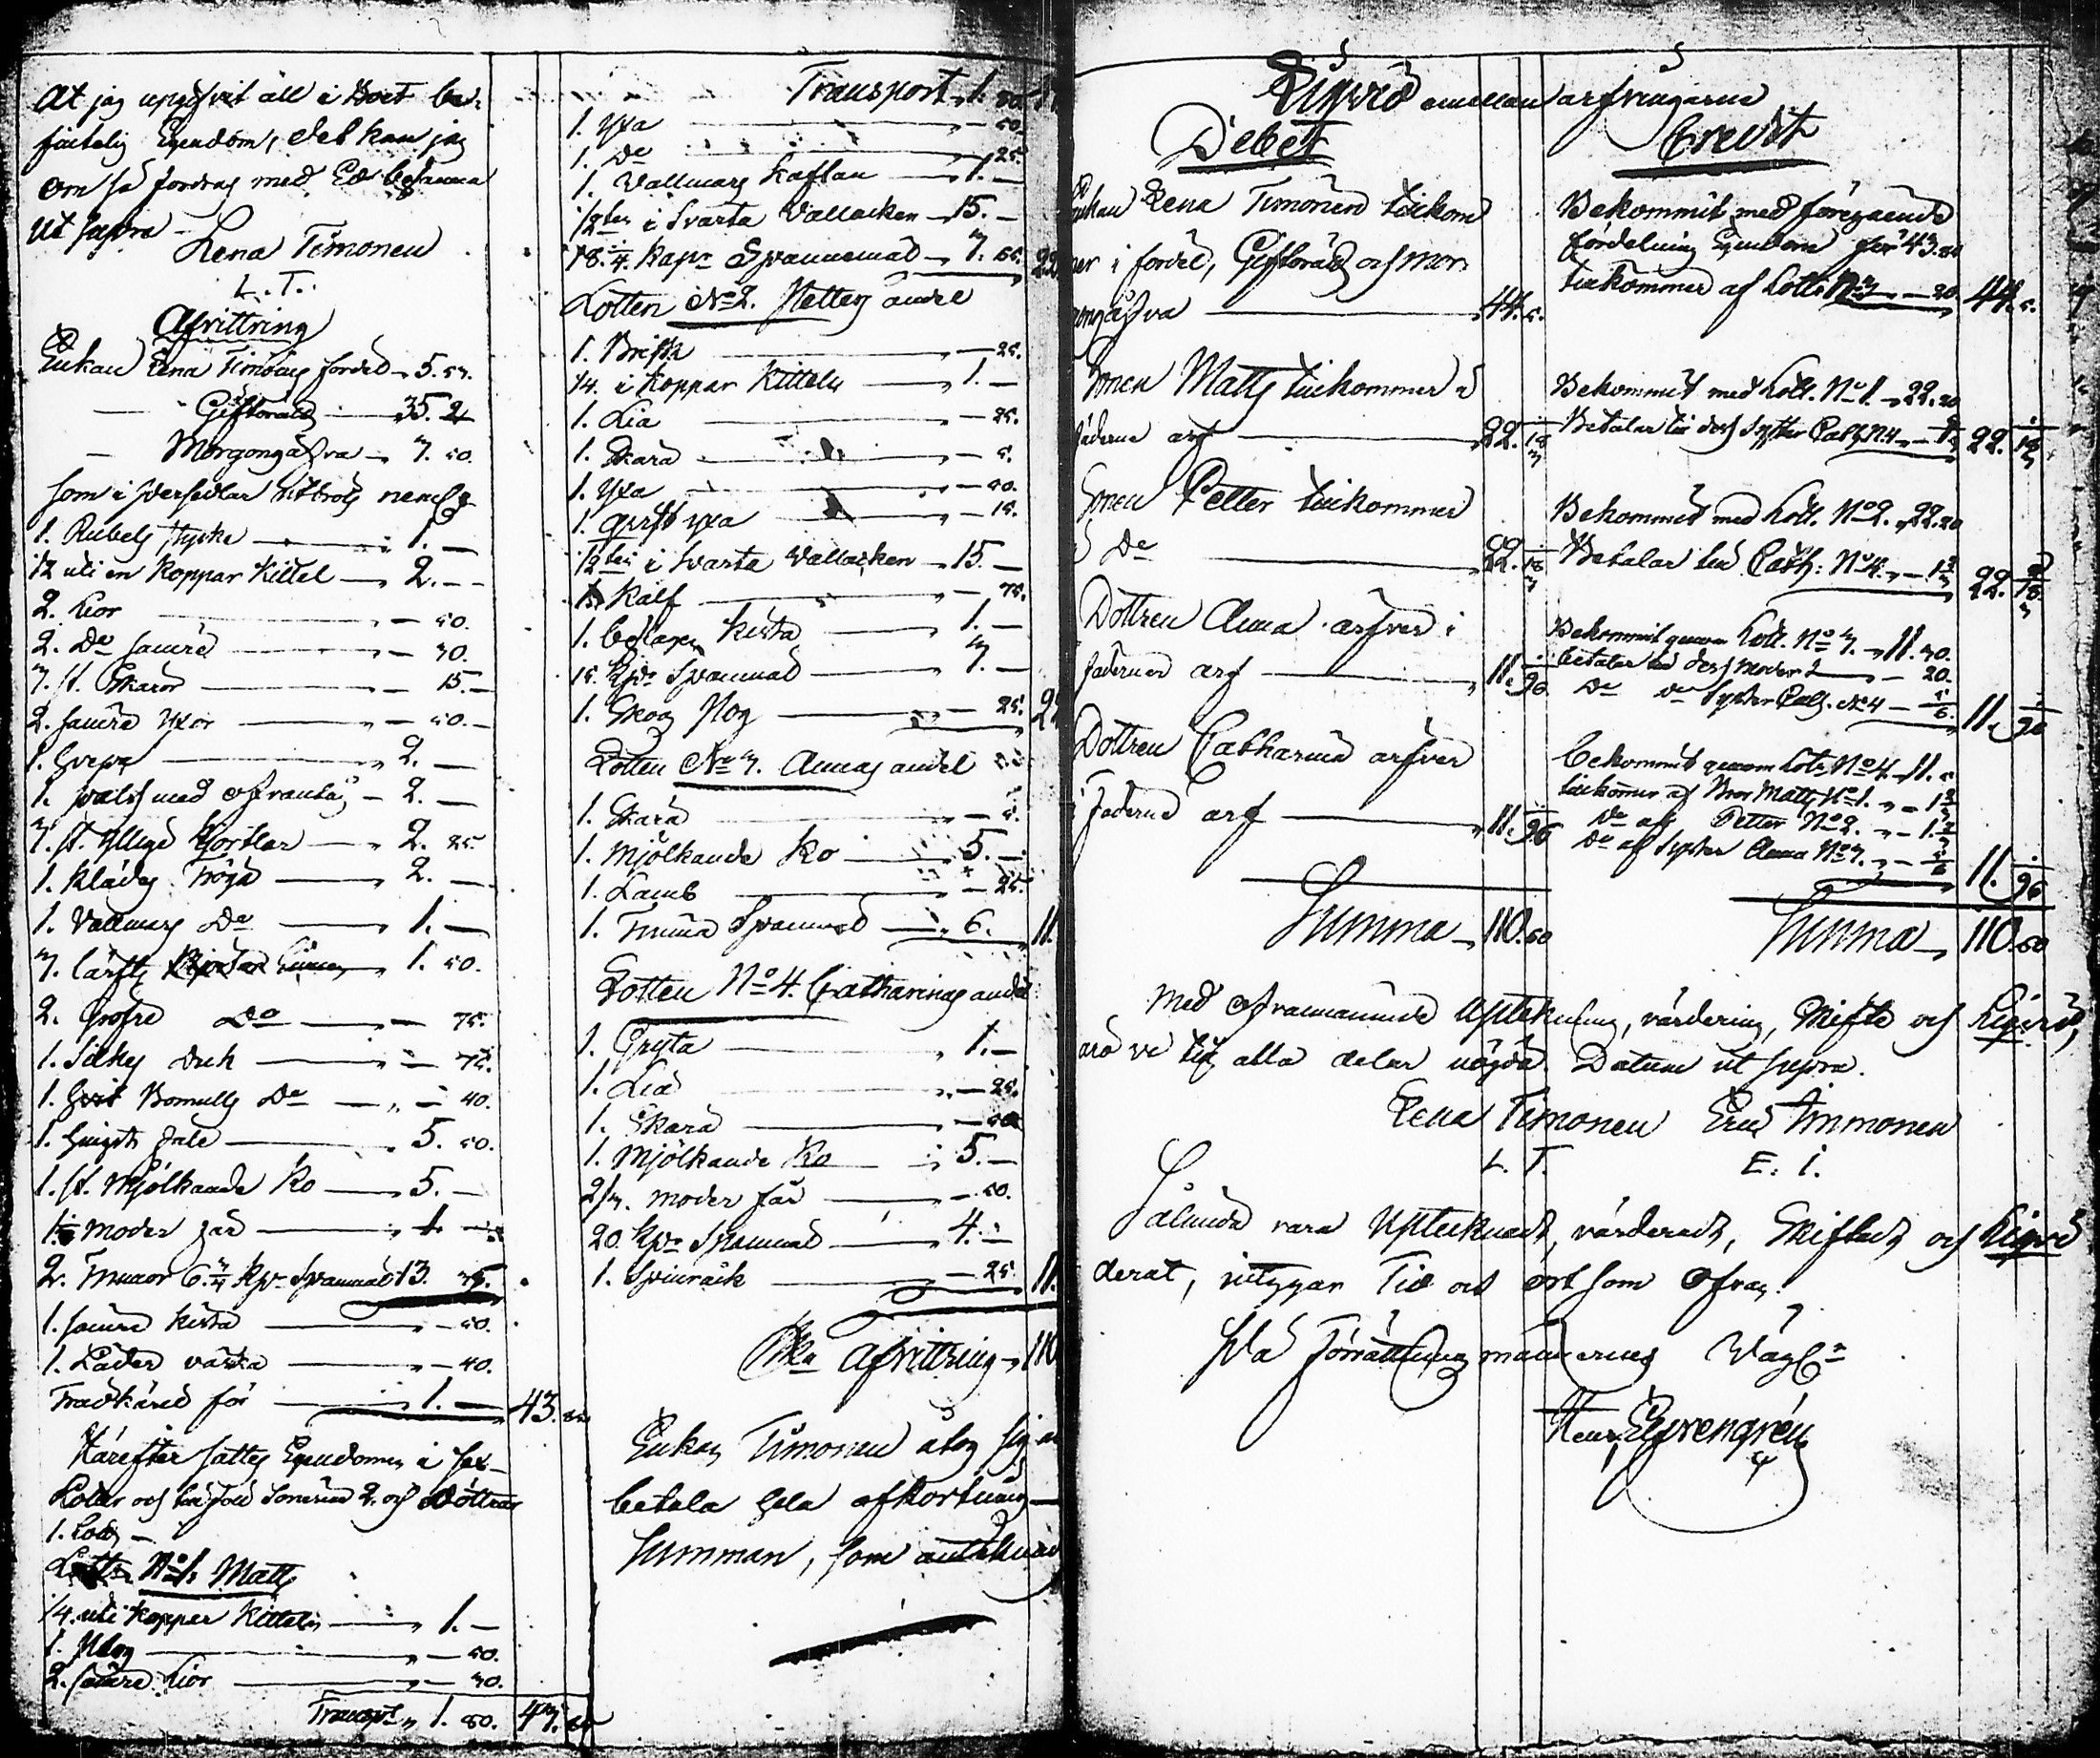 At jag upgifvit all i Boet be-
fintelig Egendom, det kan jag
om så fordras med Ed bekänna
Ut supra
Lena Timonen
L. T.
Afvittring
Enkan Lena Timoins fordel 5. 53.
Giftorätt 35. 2
Morgongåfva 3. 50.
som i Persedlar utbröts neml.
1. Rubels stycke 1. —
1/2 uti en Koppar Kittel 2. —
2. Lior — 50.
2. Do sämre — 30.
3. st. Skäror — 15.
2. sämre Yxor — 50.
1. 2. —
1. med 2. —
3. st. Yllene Kjortlar 2. 25.
1. Klädes Tröja 2. —
1. Vallmars Do 1. —
3. Lärfts 1. 50.
2. Grofre Do — 75.
1. Silkes Duk — 75.
1. Hvit Bomulls Do — 40.
1. Hingst Fale 5. 50.
1. st. Mjölkande Ko 5. —
1. Moder Får 1. —
2. Tunnor 6. 3/4 Kpr Spanmål 13. 35.
1. sämre Kista — 50.
1. Läder väska — 40.
Trädkäril för 1. — 43. 80
Härefter sattes Egendomen i sex
Loter och tillföll Sönerne 2. och Döttrar
1. Lott
Lotten No 1. Matts
1/4 uti Koppar Kitteln 1. —
1. Plog — 50.
2. sämre Lior — 30.
Transpt 1. 80. 43. 80
Transport 1. 80
1. Yxa — 50.
1. Do — 25.
1. Vallmars Kaftan 1. —
1/2ten i Svarta Vallacken 15. —
18. 1/4. Kapr Spannemål 3. 65. 22
Lotten No 2. Petters andel
1. — 25.
1/4. i Koppar Kitteln 1. —
1. Lia — 25.
1. Skära — 5.
1. Yxa — 50.
1. yxa — 15.
1/2ten i Svarta Vallacken 15. —
1. Kalf — 75.
1. beslagen Kista 1. —
15. Kpr Spannmål 3. —
1. Skog Plog — 25. 22
Lotten No 3. Annas andel
1. Skära — 5.
1. Mjölkande Ko 5. —
1. Lamb — 25.
1. Tunna Spannmål 6. 11.
Lotten No 4. Catharinas andel
1. Gryta 1. —
1. Lia — 25.
1. Skära
1. Mjölkande Ko 5. —
2/3. Moder Får — 50.
20. Kpr Spannmål 4. —
1. Spinråck — 25. 11.
Afvittring 110
Enkan Timonen åtog sig at
betala hela afkortnings
Summan, som antecknad
Liqvid emellan arfvingarne
Debet
Enkan Lena Timonen tilkom
mer i fördel, Giftorätt och Mor-
gongåfva 44. 5.
Sonen Matts tilkommer i
fäderne arf 22. 18
Sonen Petter tilkommer
i Do 22. 18
Dottren Anna ärfver i
fäderne arf 11. 96
Dottren Catharina ärfver
i fäderne arf 11. 96
Summa 110. 60
Credit
Bekommit med föregående
fördelning Egendom för 43. 80
tilkommer af Lotten No 3 — 20 44. 5.
Bekommit med Lott. No 1. 22. 20
Betalar til dess Syster Cath. No 4 22. 18
Bekommit med Lott. No 2. 22. 20
Betalar till Cath: No 4. — 1 2/3 22. 18
Bekommit genom Lott. No 3. 11. 30.
betalar till dess Moder — 20.
Do Do Syster Cath. No 4 — 5/6 11. 96
bekommit genom Lott No 4. 11. 5
tilkommer af Bror Matts No 1. — 1 2/3
Do af Petter No 2. — 1 2/3
Do af Syster Anna No 3. — 5/6 11. 96
Summa 110. 60
Med ofvannämnde Uptekning, värdering, Skifte och Liqvid,
äro vi till alla delar nögda. Datum ut supra.
Lena Timonen Eric Immonen
L. T. E. I.
Sålunda vara Uptecknadt, värderadt, Skiftadt och Liqvi
derat, intygar Tid och ort som ofvan
På Förrättningsmännernes Vägn
Henr. Elfvengrén